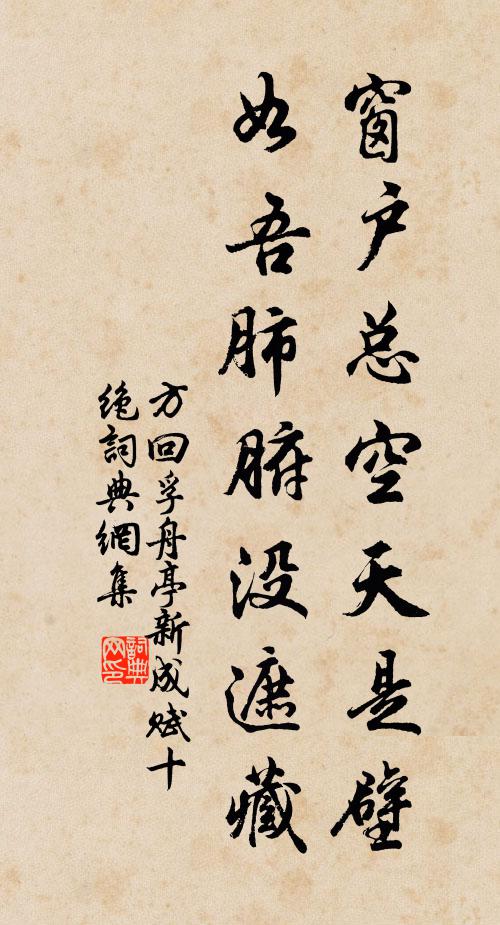 窗户总空天是壁
如吾肺腑没遮藏
方回孚舟亭新成赋十
绝詞典網集
詞典
网印